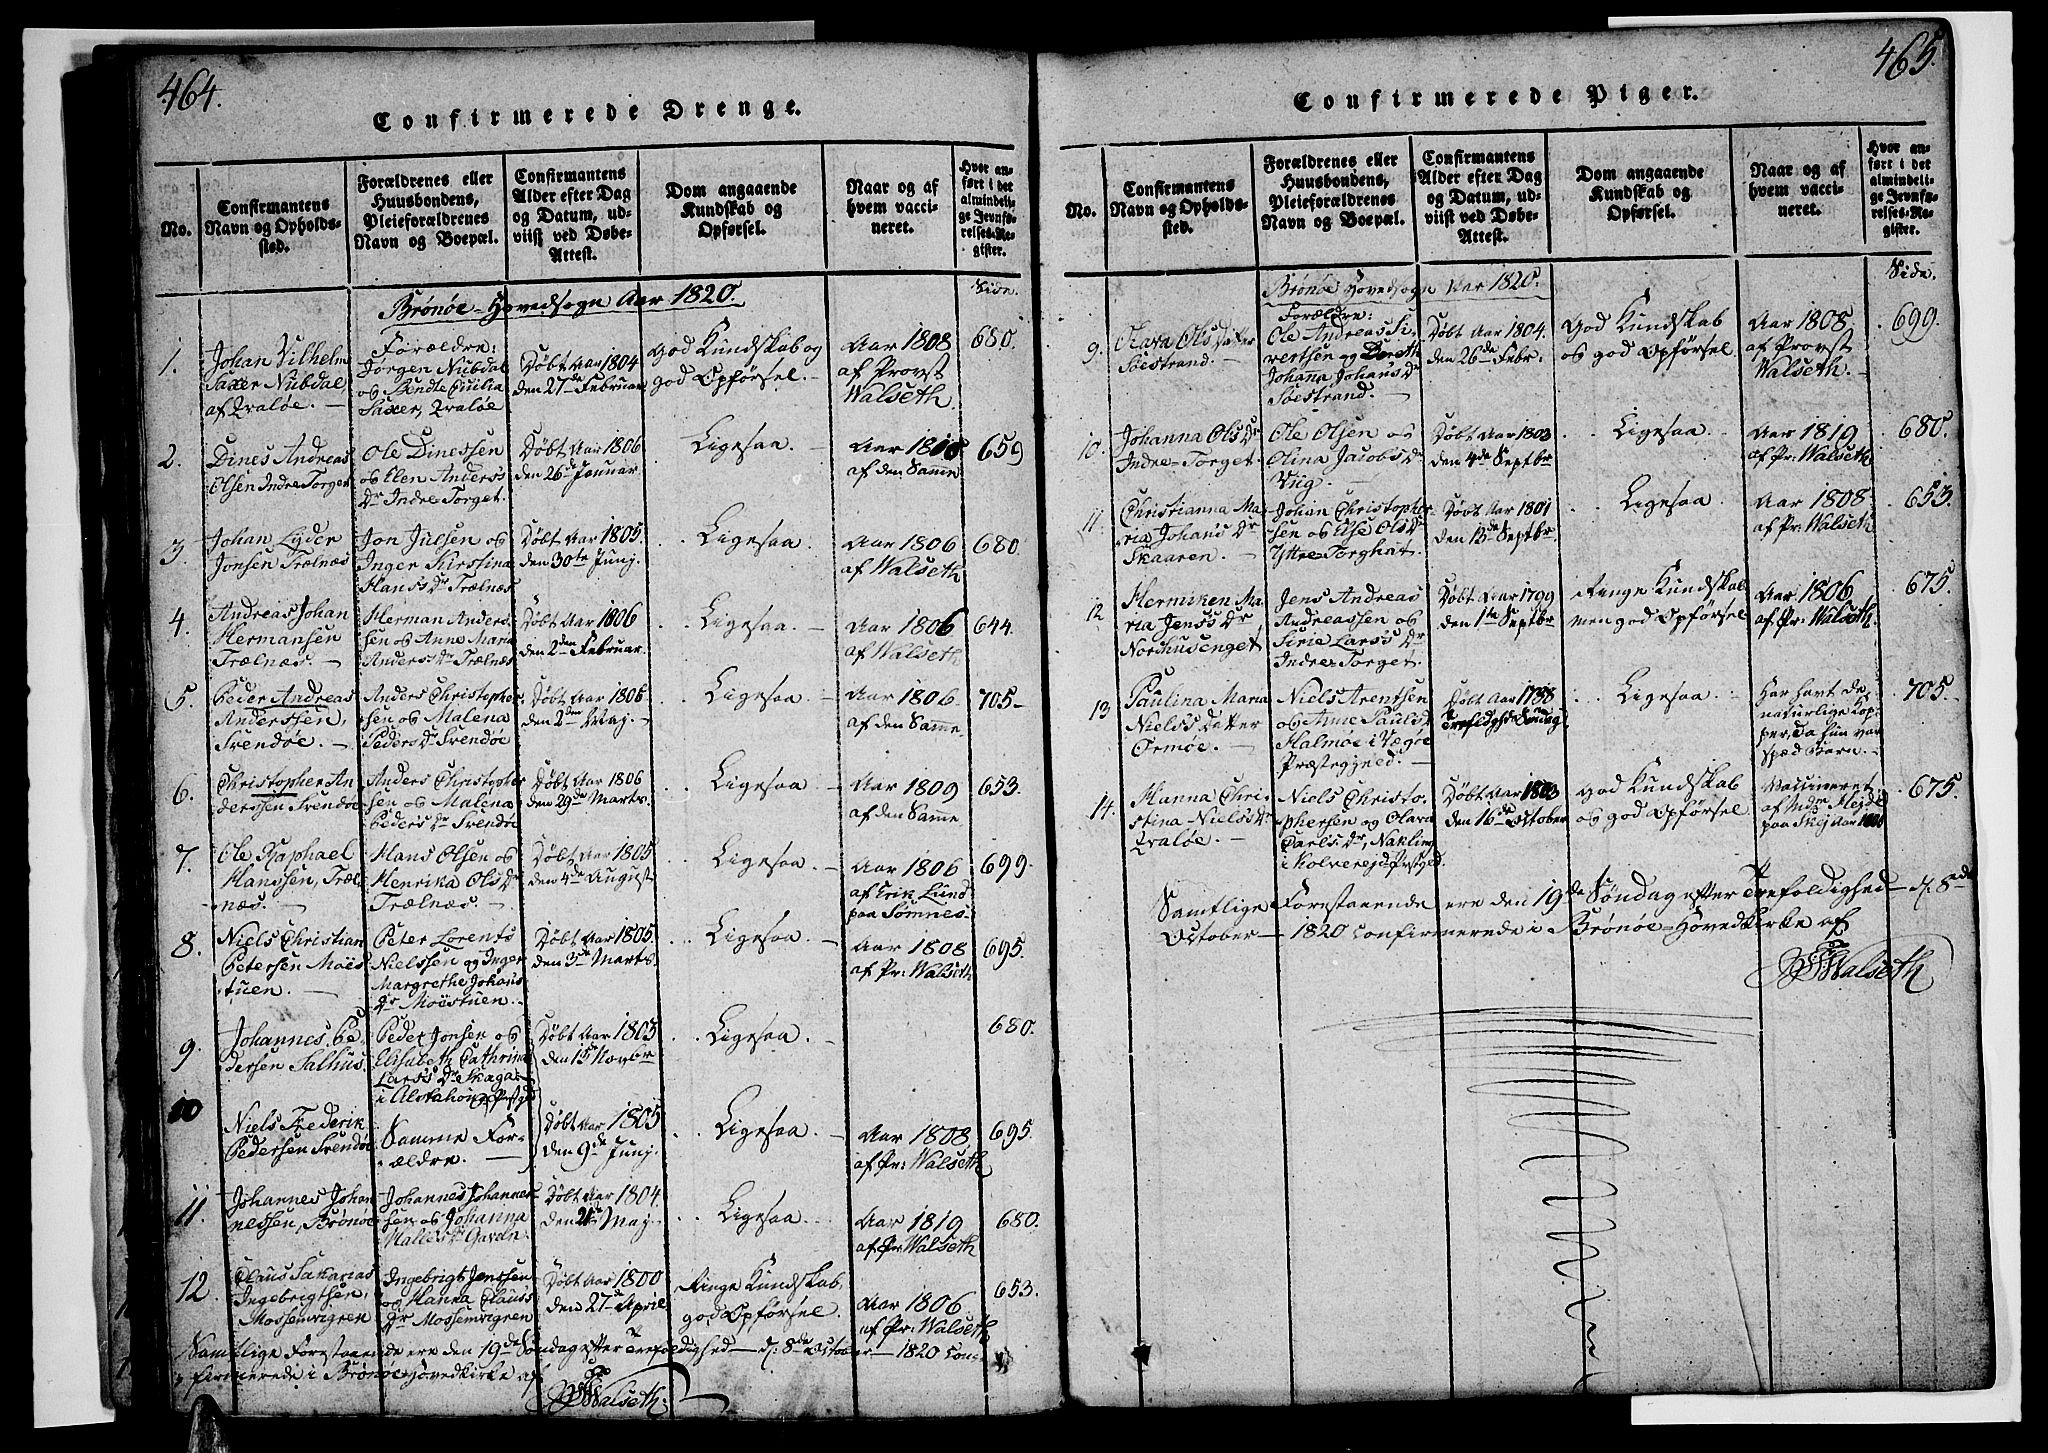 464.
Confirmerede Drenge.
No.
Confirmantens
Navn og Opholds-
sted.
Forældrenes eller
Huusbondens,
Pleieforældrenes
Navn og Boepæl.
Confirmantens
Alder efter Dag
og Datum, ud-
viist ved Døbe-
Attest.
Dom angaaende
Kundskab og
Opførsel.
Naar og af
hvem vacci-
neret.
Hvor an-
ført i det
almindeli-
ge Jevnfø-
relses-Re-
gister.
Brønøe-Hovedsogn Aar 1820.
Side.
1.
Johan Vilhelm
Saxer Nubdal,
af Qvaløe. —
Forældre:
Jørgen Nubdal
og Bendte Cicilia
Saxer, Qvaløe
Døbt Aar 1804
den 27de Februar
God Kundskab og
god Opførsel. —
Aar 1808
af Provst
Walseth.
680.
2.
Dines Andreas
Olsen Indre Torget
Ole Dinessen
og Elen Anders
Dr Indre Torget.
Døbt Aar 1806
den 26de Januar.
Ligesaa.
Aar 1808
af den Samme
659
3.
Johan Lyder
Jonsen Trælnæs
Jon Julsen og
Inger Kirstina
Hans Dr Trælnæs
Døbt Aar 1805.
den 30te Junj.
Ligesaa.
Aar 1806
af Walseth
680.
4.
Andreas Johan
Hermansen
Trælnæs. —
Herman Anders-
sen og Anne Maria
Anders Dr Trælnæs
Døbt Aar 1806
den 2den Februar.
Ligesaa. —
Aar 1806
af Walseth
644.
5.
Peder Andreas
Anderssen,
Svendøe. —
Anders Christopher-
sen og Malena
Peders Dr Svendøe
Døbt Aar 1806
den 2den Maj. —
Ligesaa —
Aar 1806.
af den Samme
705-
6.
Christopher An
derssen Svendøe
Anders Christopher
sen og Malena
Peders Dr Svendøe
Døbt Aar 1806
den 29de Marts.
Ligesaa —
Aar 1809
af den Samme
653.
7.
Ole Raphael
Hanssen, Træl-
næs. —
Hans Olsen og
Henrika Ols Dr
Trælnæs. —
Døbt Aar 1805
den 4de August
Ligesaa —
Aar 1806
af Erik Lund
paa Sømnes.
699.
8.
Niels Christian
Petersen Moës-
tuen. —
Peter Lorents
Nielssen og Inger
Margrethe Johans
Dr Moëstuen. —
Døbt Aar 1805.
den 3de Marts.
Ligesaa. —
Aar 1808
af Pr: Walseth
695.
9.
Johannes Pe-
dersen Salhus.
Peder Jonsen og
Elisabeth Cathrina
Lars Dr Skaga
i Alstahoug Prstgd
Døbt Aar 1803
den 13de Novbr
Ligesaa. —
680.
10
Niels Frederik
Pedersen Svendøe
Samme For-
ældre. —
Døbt Aar 1805
den 9de Junj.
Ligesaa. —
Aar 1808.
af Pr: Walseth
695.
11.
Johannes Johan
nessen, Brønøe
Johannes Johannes-
sen og Johanna
Dr
Døbt Aar 1804.
den Maj.
Ligesaa.
Aar 1819
af Pr: Walseth
680.
12.
Claus Sakarias
Ingebrigtsen,
Mossemvigren
Ingebrigt Jenssen
og Hanna Claus
Dr Mossemvigren
Døbt Aar 1800
den 27de April
Ringe Kundskab,
god Opførsel.
Aar 1806.
af Pr: Walseth
653.
Samtlige Forestaaende ere den 19de Søndag efter Trefoldighed — d: 8de October — 1820 Con-
firmerede i Brønøe Hovedkirke af
Walseth.
465.
Confirmerede Piger.
No.
Confirmantens
Navn og Opholds-
sted.
Forældrenes eller
Huusbondens,
Pleieforældrenes
Navn og Boepæl.
Confirmantens
Alder efter Dag
og Datum, ud-
viist ved Døbe-
Attest.
Dom angaaende
Kundskab og
Opførsel.
Naar og af
hvem vacci-
neret.
Hvor an-
ført i det
almindeli-
ge Jevnfø-
relses-Re-
gister.
Brønøe Hovedsogn Aar 1820.
Side.
9.
Olava Ols Datter
Søestrand. —
Forældre:
Ole Andreas Si-
vertsen og Doreth
Johanna Johans Dr
Søestrand. —
Døbt Aar 1804.
den 26de Febr.
God Kundskab
og god Opførsel.
Aar 1808
af Provst
Walseth. —
699.
10.
Johanna Ols Dr
Indre-Torget.
Ole Olsen og
Olina Jacobs Dr
Viig. —
Døbt Aar 1803
den 4de Septbr
Ligesaa.
Aar 1819
af Pr: Walseth
680.
11.
Christianna Ma-
ria Johans Dr
Skaaren. —
Johan Christopher-
sen og Else Ols Dr
Yttre-Torghat.
Døbt Aar 1801
den 13de Septbr.
Ligesaa.
Aar 1808
af Pr: Walseth
653.
12
Hermiken Ma-
ria Jens Dr,
Norhusenget
Jens Andreas
Andreassen og
Sirie Lars Dr
Indre-Torget.
Døbt Aar 1799
den 1te Septbr
Ringe Kundskab
men god Opførsel
Aar 1806
af Pr: Walseth.
675.
13
Paulina Maria
Niels Datter
Ormøe. —
Niels Arentsen
og Anne Pauls Dr
Halmøe i Vegøe
Præstegjned. —
Døbt Aar 1788
Trefoldigheds Søndag
Ligesaa —
Har havt de
naturlige Kop-
per, da hun var
spæd Barn. —
705.
14.
Hanna Chri-
stina Niels Dr
Qvaløe. —
Niels Christo-
phersen og Olava
Carls Dr, Nakling
i Kolvereid Prstgd.
Døbt Aar 1803
den 16de October
God Kundskab
og god Opførsel.
Vaccineret
af Hejde
paa Aar
675.
Samtlige Forestaaende ere den 19de Søndag efter Trefoldighed — d: 8de
October — 1820 Confirmerede i Brønøe-Hovedkirke af
Walseth